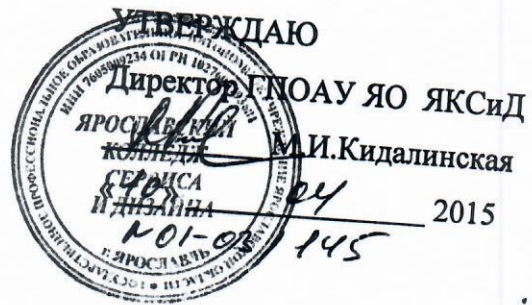 УТВЕРЖДАЮ
Директор ГПОАУ ЯО ЯКСиД
М.И.Кидалинская
«10» 04 2015
№ 01-03/145
ЯРОСЛАВСКИЙ
КОЛЛЕДЖ
СЕРВИСА
И ДИЗАЙНА
г. ЯРОСЛАВЛЬ